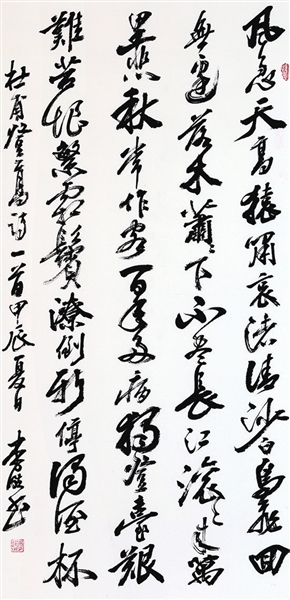 風急天高猿嘯哀渚清沙白鳥飛回
無邊落木蕭〻下不盡長江滾〻來萬
里悲秋常作客百年多病獨登臺艱
難苦恨繁霜鬢潦倒新停濁酒杯
杜甫登高詩一首甲辰夏日 李